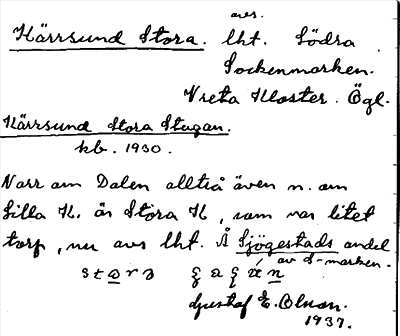 avs.
Kärrsund Stora. lht. Södra
Sockenmarken.
Vreta Kloster. Ögl.
Kärrsund Stora Stugan.
kb. 1930.
Norr om Dalen alltså även n. om
Lilla K. är Stora K, som var litet
torp, nu avs lht. Å Sjögestads andel
av S-marken.
Gustaf E. Olson.
1937.